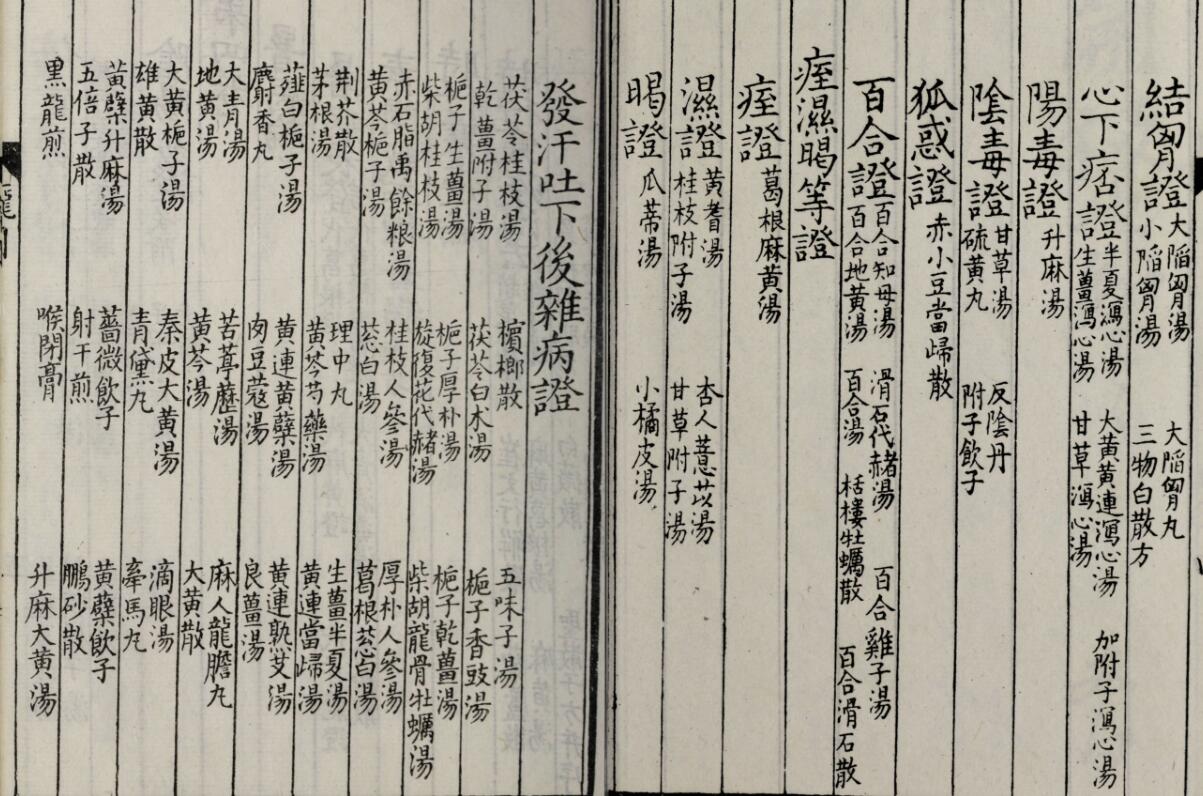 結胷證 大陷胷湯 大陷胷丸
小陷胷湯 三物白散方
心下痞證 半夏瀉心湯 大黄黄連瀉心湯 加附子瀉心湯
生薑瀉心湯 甘草瀉心湯
陽毒證 升麻湯
陰毒證 甘草湯 反陰丹
硫黄丸 附子飲子
狐惑證 赤小豆當歸散
百合證 百合知母湯 滑石代赭湯 百合雞子湯
百合地黄湯 百合湯 栝樓牡蠣散 百合滑石散
痓濕暍等證
痓證 葛根麻黄湯
濕證 黄耆湯 杏人薏苡湯
桂枝附子湯 甘草附子湯
暍證 瓜蒂湯 小橘皮湯
發汗吐下後雜病證
茯苓桂枝湯 檳榔散 五味子湯
乾薑附子湯 茯苓白术湯 梔子香豉湯
梔子生薑湯 梔子厚朴湯 梔子乾薑湯
柴胡桂枝湯 旋復花代赭湯 柴胡龍骨牡蠣湯
赤石脂禹餘粮湯 桂枝人參湯 厚朴人參湯
黄芩梔子湯 葱白湯 葛根葱白湯
荆芥散 理中丸 生薑半夏湯
茅根湯 黄芩芍藥湯 黄連當歸湯
薤白梔子湯 黄連黄蘗湯 黄連熟艾湯
麝香丸 肉豆蔻湯 良薑湯
大青湯 苦葶藶湯 麻人龍膽丸
地黄湯 黄芩湯 大黄散
大黄梔子湯 秦皮大黄湯 滴眼湯
雄黄散 青黛丸 牽馬丸
黄蘗升麻湯 薔薇飲子 黄蘗飲子
五倍子散 射干煎 鵬砂散
黑龍煎 喉閉膏 升麻大黄湯